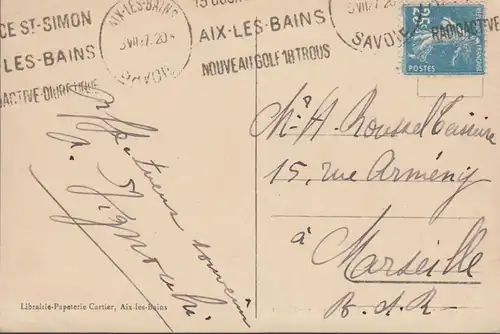 CE ST-SIMON
LES-BAINS
ACTIVE-DIURETIQUE
AIX-LES-BAINS
SAVOIE
AIX-LES-BAINS
NOUVEAU GOLF 18 TROUS
SAVOIE
RADIOACTIVE
25c
POSTES
Affectueux souvenir
Mr A. Roussel
15, rue Armény
à
Marseille
B. d. R.
Librairie-Papeterie Cartier, Aix-les-Bains